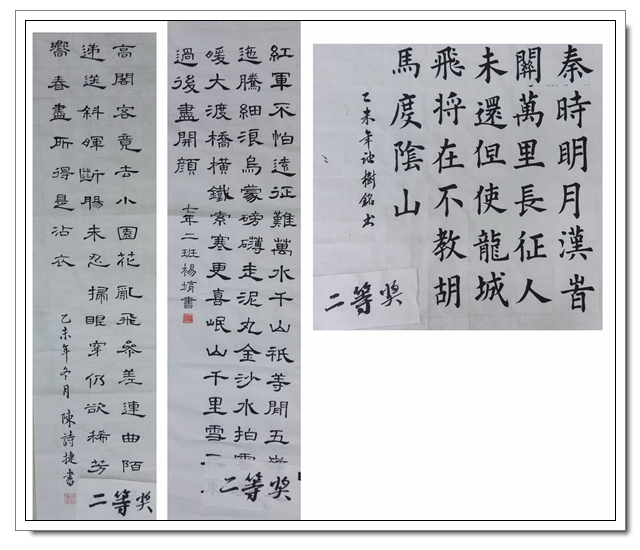 高閣客竟去小園花亂飛參差連曲陌
遞送斜暉斷腸未忍掃眼穿仍欲稀芳
嚮春盡所得是沾衣
乙未年冬月 陳詩捷書
二等奖
紅軍不怕遠征難萬水千山祇等閒五
逶騰細浪烏蒙磅礴走泥丸金沙水拍雲
暖大渡橋橫鐵索寒更喜岷山千里雪
過後盡開顏
七年二班楊堉書
二等奖
秦時明月漢旹
關萬里長征人
未還但使龍城
飛将在不教胡
馬度陰山
乙未年 樹銘书
二等奖